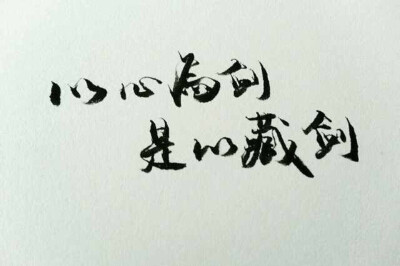 以心为剑
是以藏剑